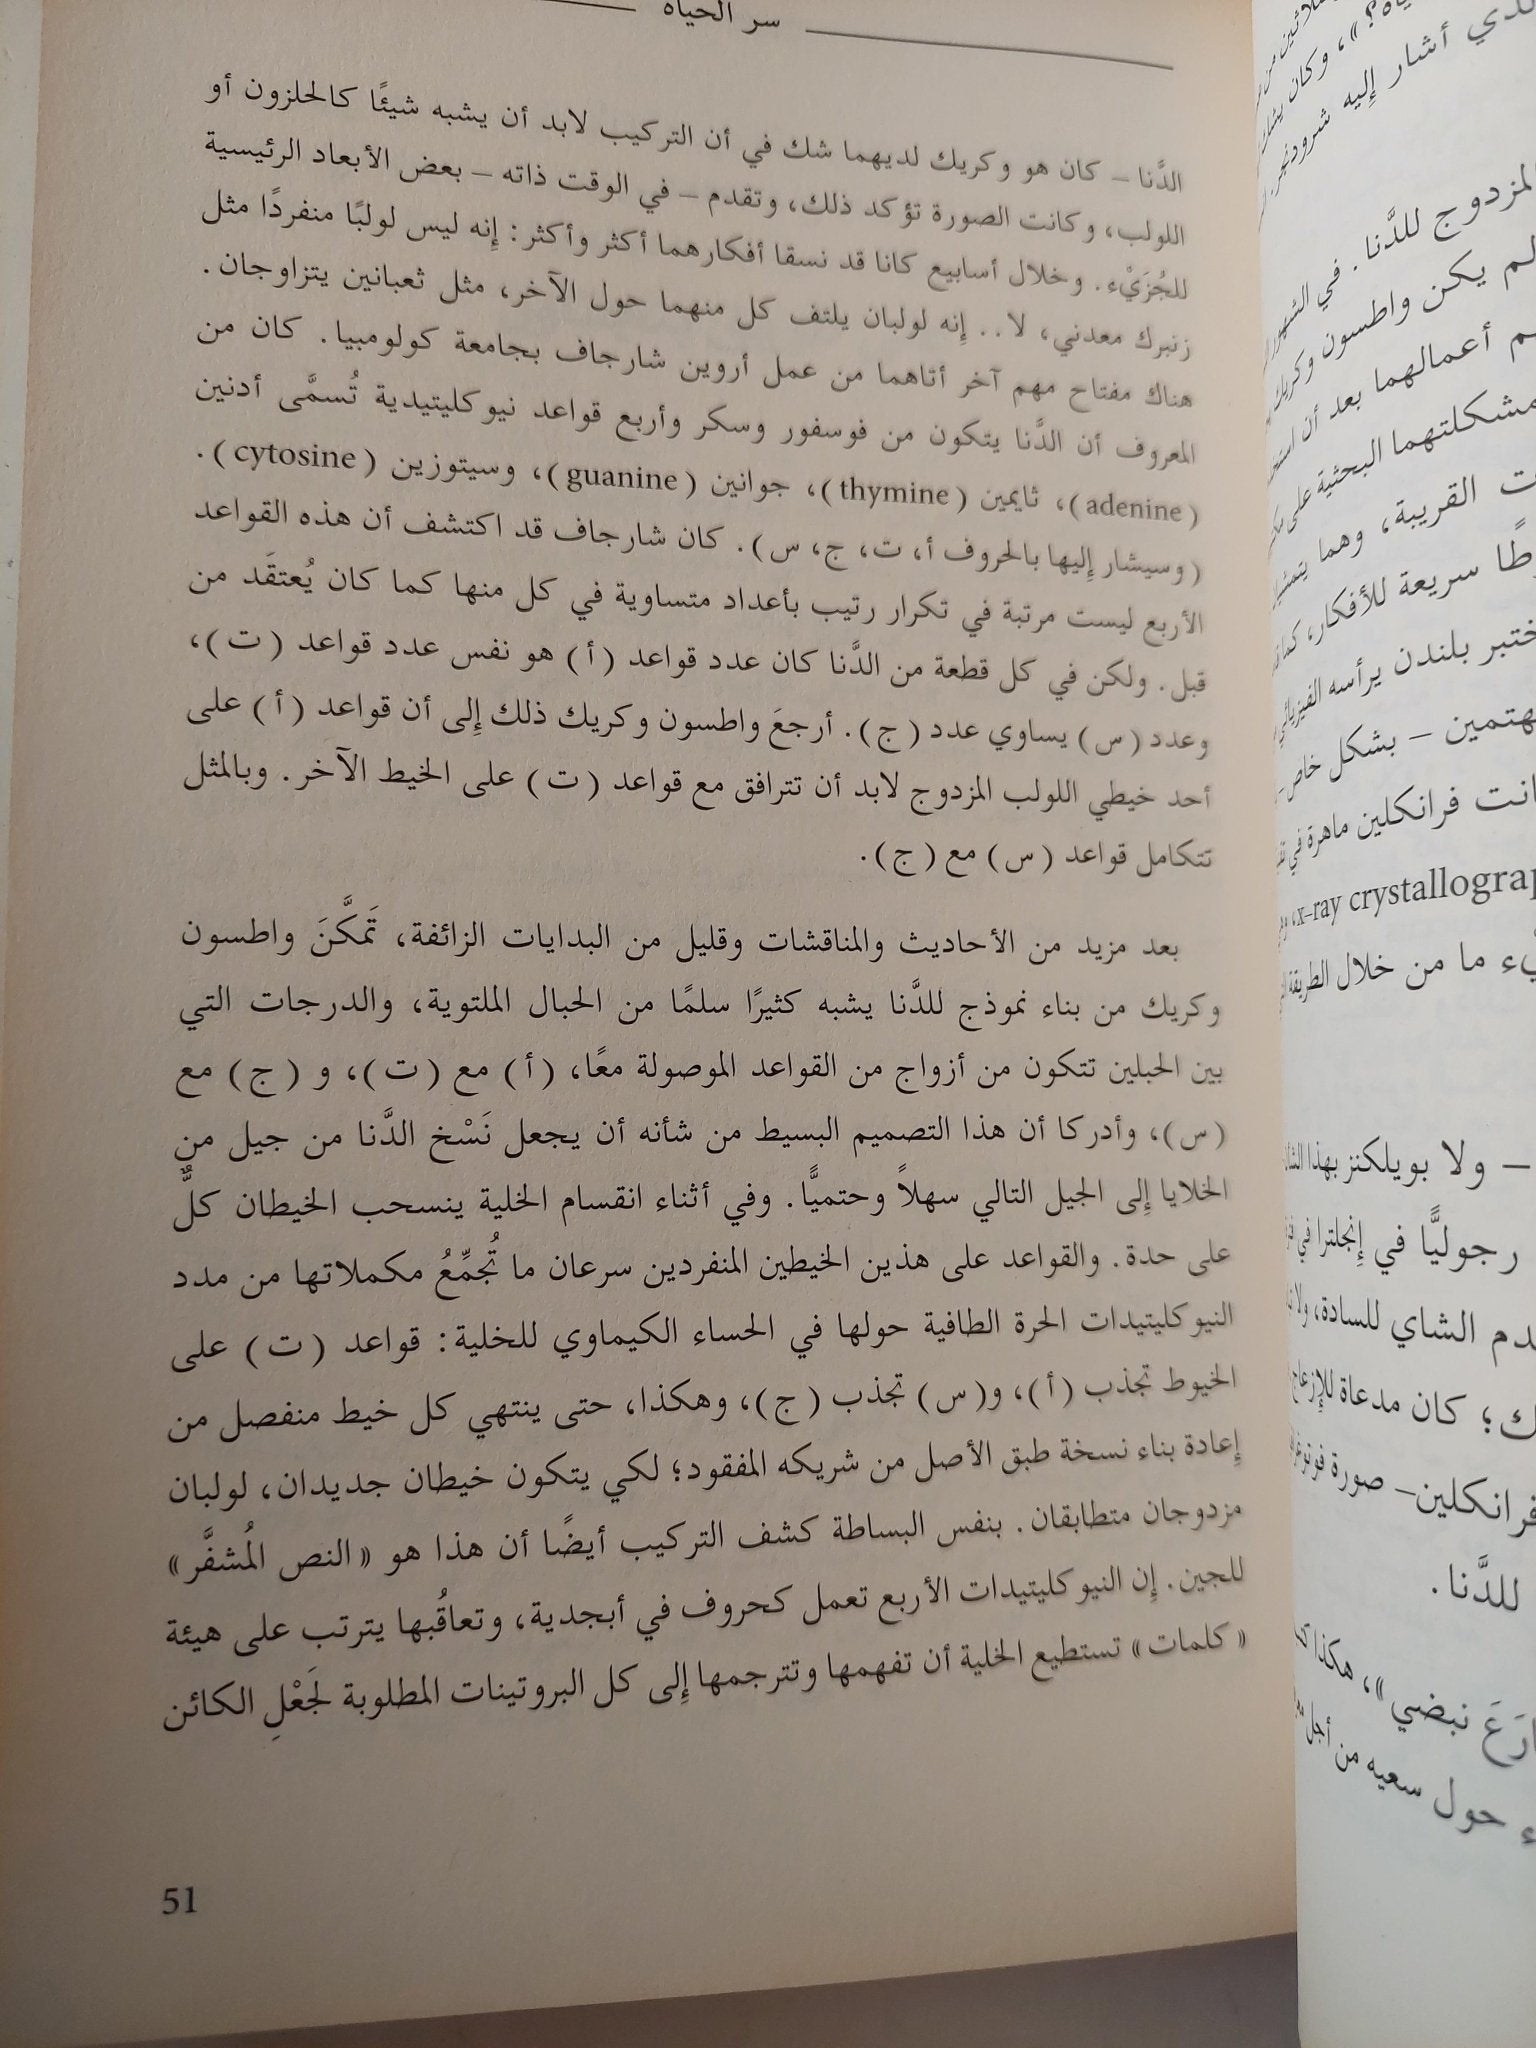 سر الحياة
الدَّنا – كان هو وكريك لديهما شك في أن التركيب لابد أن يشبه شيئًا كالحلزون أو
اللولب، وكانت الصورة تؤكد ذلك، وتقدم – في الوقت ذاته – بعض الأبعاد الرئيسية
للجُزَيْء. وخلال أسابيع كانا قد نسقا أفكارهما أكثر وأكثر: إنه ليس لولبًا منفردًا مثل
زنبرك معدني، لا.. إنه لولبان يلتف كل منهما حول الآخر، مثل ثعبانين يتزاوجان.
هناك مفتاح مهم آخر أتاهما من عمل أروين شارجاف بجامعة كولومبيا. كان من
المعروف أن الدَّنا يتكون من فوسفور وسكر وأربع قواعد نيوكليتيدية تُسمَّى أدنين
(adenine)، ثايمين (thymine)، جوانين (guanine)، وسيتوزين (cytosine).
(وسيشار إليها بالحروف أ، ت، ج، س). كان شارجاف قد اكتشف أن هذه القواعد
الأربع ليست مرتبة في تكرار رتيب بأعداد متساوية في كل منها كما كان يُعتقَد من
قبل. ولكن في كل قطعة من الدَّنا كان عدد قواعد (أ) هو نفس عدد قواعد (ت)،
وعدد (س) يساوي عدد (ج). أرجعَ واطسون وكريك ذلك إلى أن قواعد (أ) على
أحد خيطي اللولب المزدوج لابد أن تترافق مع قواعد (ت) على الخيط الآخر. وبالمثل
تتكامل قواعد (س) مع (ج).
بعد مزيد من الأحاديث والمناقشات وقليل من البدايات الزائفة، تَمكَّنَ واطسون
وكريك من بناء نموذج للدَّنا يشبه كثيرًا سلمًا من الحبال الملتوية، والدرجات التي
بين الحبلين تتكون من أزواج من القواعد الموصولة معًا، (أ) مع (ت)، و (ج) مع
(س)، وأدركا أن هذا التصميم البسيط من شأنه أن يجعل نَسْخ الدَّنا من جيل من
الخلايا إلى الجيل التالي سهلاً وحتميًّا. وفي أثناء انقسام الخلية ينسحب الخيطان كلٌّ
على حدة. والقواعد على هذين الخيطين المنفردين سرعان ما تُجمِّعُ مكملاتها من مدد
النيوكليتيدات الحرة الطافية حولها في الحساء الكيماوي للخلية: قواعد (ت) على
الخيوط تجذب (أ)، و(س) تجذب (ج)، وهكذا، حتى ينتهي كل خيط منفصل من
إعادة بناء نسخة طبق الأصل من شريكه المفقود؛ لكي يتكون خيطان جديدان، لولبان
مزدوجان متطابقان. بنفس البساطة كشف التركيب أيضًا أن هذا هو «النص المُشفَّر»
للجين. إن النيوكليتيدات الأربع تعمل كحروف في أبجدية، وتعاقُبها يترتب على هيئة
«كلمات» تستطيع الخلية أن تفهمها وتترجمها إلى كل البروتينات المطلوبة لجَعْلِ الكائن
51
أشار إليه شرودنجر
المزدوج للدَّنا. في الشهور
لم يكن واطسون وكريك
أعمالهما بعد أن
مشكلتهما البحثية على
القريبة، وهما
سريعة للأفكار، كما
بلندن يرأسه الفيزيائي
– بشكل خاص –
فرانكلين ماهرة في
x-ray crystallograp
ما من خلال الطريقة
– ولا بويلكنز بهذا
رجوليًّا في إنجلترا في
الشاي للسادة، ولا
كان مدعاة للإزعاج
فرانكلين – صورة
للدَّنا.
نبضي»، هكذا
حول سعيه من أجل